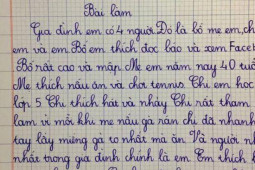 Bài làm
Gia đình em có 4 người Đó là bố mẹ em, ch
em và em Bố em thích đọc báo và xem Face
Bố rất cao và mập. Mẹ em năm nay 40 tuổ
Mẹ thích nấu ăn và chơi tennis. Chị em học
lớp 5 Chị thích hát và nhảy Chị rất tham
lam vì mỗi khi mẹ nấu gà rán chị đã nhanh
tay lấy miếng gà to nhất mà ăn Và người n
nhất trong gia đình chính là em Em thích